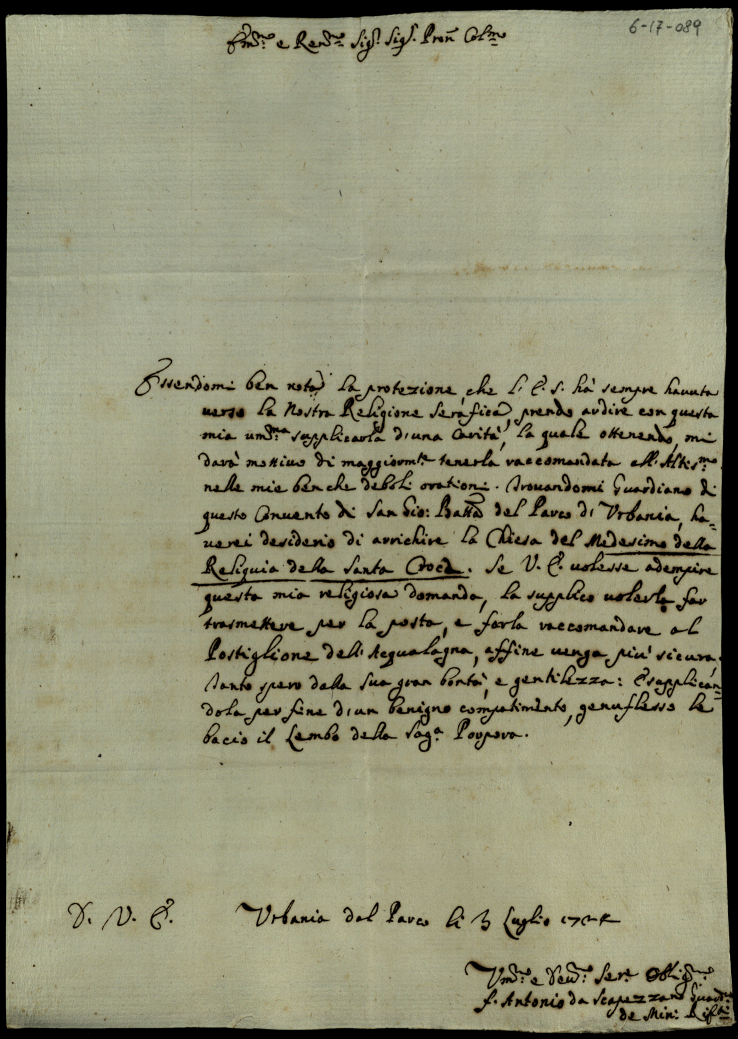 6-17-089
Em.mo e Rev.mo Sig.r Sig.r Pron Col.mo
Essendomi ben nota la protezione, che l'E. S. hà sempre havuta
verso la Nostra Religione Serafica, prendo ardire con questa
mia um.ma supplicarla d'una Carità, la quale ottenendo, mi
darà mottivo di maggiorm.te tenerla raccomandata all'Altis.mo
nelle mie benche deboli orationi. Trovandomi Guardiano di
questo Convento di San Gio: Batta del Parco di Urbania, ha-
verei desiderio di arrichire la Chiesa del Medesimo della
Reliquia della Santa Croce. Se V. E. volesse adempire
questa mia religiosa domanda, la supplico volerla far
trasmettere per la posta, e farla raccomandare al
Postiglione dell'Acqualagna, affine venga più sicura.
Tanto spero dalla sua gran bontà, e gentilezza: E supplican-
dola per fine d'un benigno compatimento, genuflesso le
bacio il Lembo della Sag.a Porpora.
D. V. E. Urbania dal Parco li 3 Luglio
Um.mo e Dev.mo Ser.e Oblig.mo
f. Antonio da Scapezzano Guard.no
de Min: Rif.ti